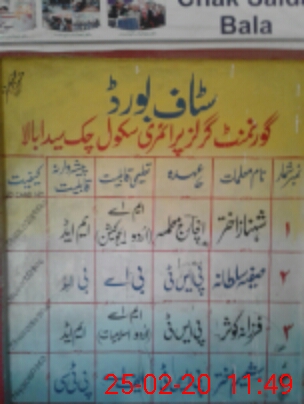 Chak Saida
Bala
سٹاف بورڈ
گورنمنٹ گرلز پرائمری سکول چک سیدا بالا
نمبر شمار نام معلمات عہدہ تعلیمی قابلیت پیشہ ورانہ قابلیت کیفیت
۱ شہناز اختر انچارج معلمہ ایم اے (اردو، ایجوکیشن) ایم ایڈ
۲ صفیہ سلطانہ پی ایس ٹی بی اے بی ایڈ
۳ غزالہ کوثر پی ایس ٹی ایم اے (اردو، اسلامیات) ایم ایڈ
اختر پی ٹی سی
25-02-20 11:49